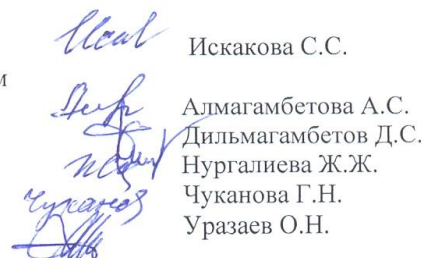 Искакова С.С.
м
Алмагамбетова А.С.
Дильмагамбетов Д.С.
Нургалиева Ж.Ж.
Чуканова Г.Н.
Уразаев О.Н.